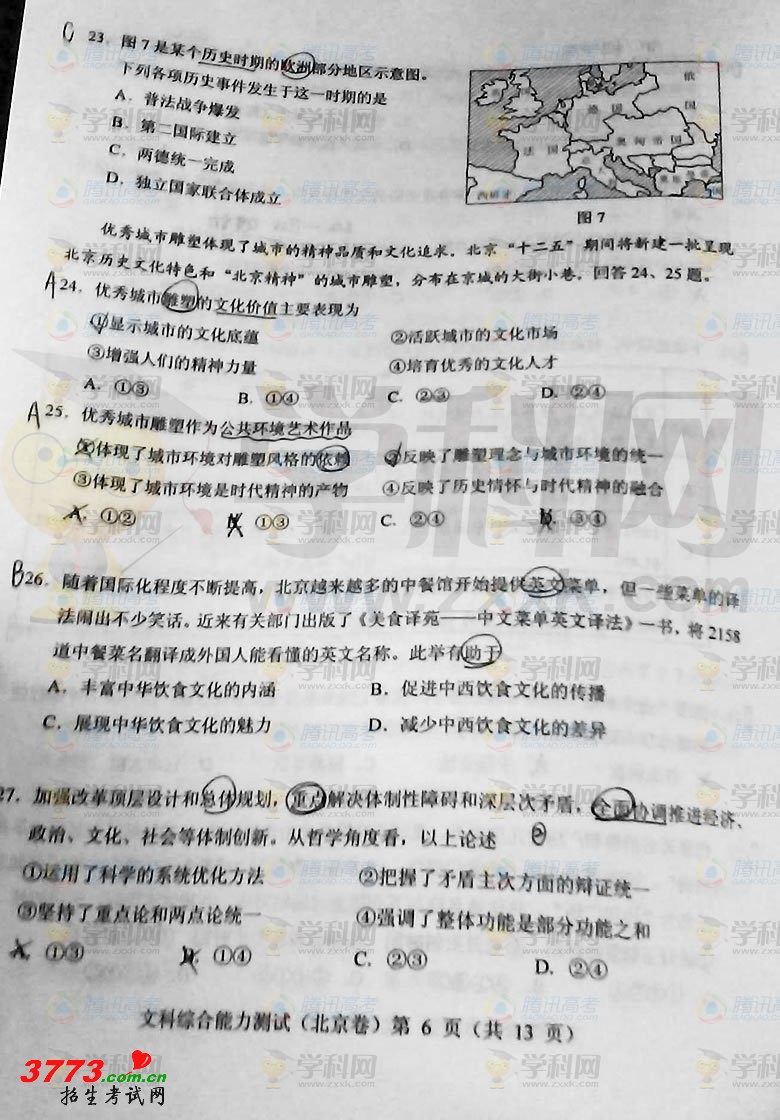 C 23. 图7是某个历史时期的欧洲部分地区示意图。
下列各项历史事件发生于这一时期的是
A. 普法战争爆发
B. 第二国际建立
C. 两德统一完成
D. 独立国家联合体成立
俄
国
德 国
法 国
奥匈帝国
意大利
西班牙
图7
优秀城市雕塑体现了城市的精神品质和文化追求。北京“十二五”期间将新建一批呈现
北京历史文化特色和“北京精神”的城市雕塑，分布在京城的大街小巷。回答24、25题。
A 24. 优秀城市雕塑的文化价值主要表现为
①显示城市的文化底蕴 ②活跃城市的文化市场
③增强人们的精神力量 ④培育优秀的文化人才
A. ①③ B. ①④ C. ②③ D. ②④
A 25. 优秀城市雕塑作为公共环境艺术作品
①体现了城市环境对雕塑风格的依赖 ②反映了雕塑理念与城市环境的统一
③体现了城市环境是时代精神的产物 ④反映了历史情怀与时代精神的融合
A. ①② B. ①③ C. ②④ D. ③④
B 26. 随着国际化程度不断提高，北京越来越多的中餐馆开始提供英文菜单，但一些菜单的译
法闹出不少笑话。近来有关部门出版了《美食译苑——中文菜单英文译法》一书，将2158
道中餐菜名翻译成外国人能看懂的英文名称。此举有助于
A. 丰富中华饮食文化的内涵 B. 促进中西饮食文化的传播
C. 展现中华饮食文化的魅力 D. 减少中西饮食文化的差异
27. 加强改革顶层设计和总体规划，重点解决体制性障碍和深层次矛盾，全面协调推进经济、
政治、文化、社会等体制创新。从哲学角度看，以上论述
①运用了科学的系统优化方法 ②把握了矛盾主次方面的辩证统一
③坚持了重点论和两点论统一 ④强调了整体功能是部分功能之和
A. ①③ B. ①④ C. ②③ D. ②④
文科综合能力测试（北京卷）第 6 页（共 13 页）
3773.com.cn
招生考试网
学科网
www.zxxk.com
腾讯高考